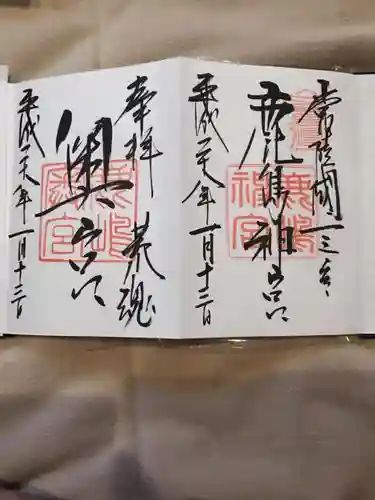 常陸國一之宮
鹿島神宮
平成二十八年一月十三日
奉拝 荒魂
奥宮
平成二十八年一月十三日
鹿嶋神宮